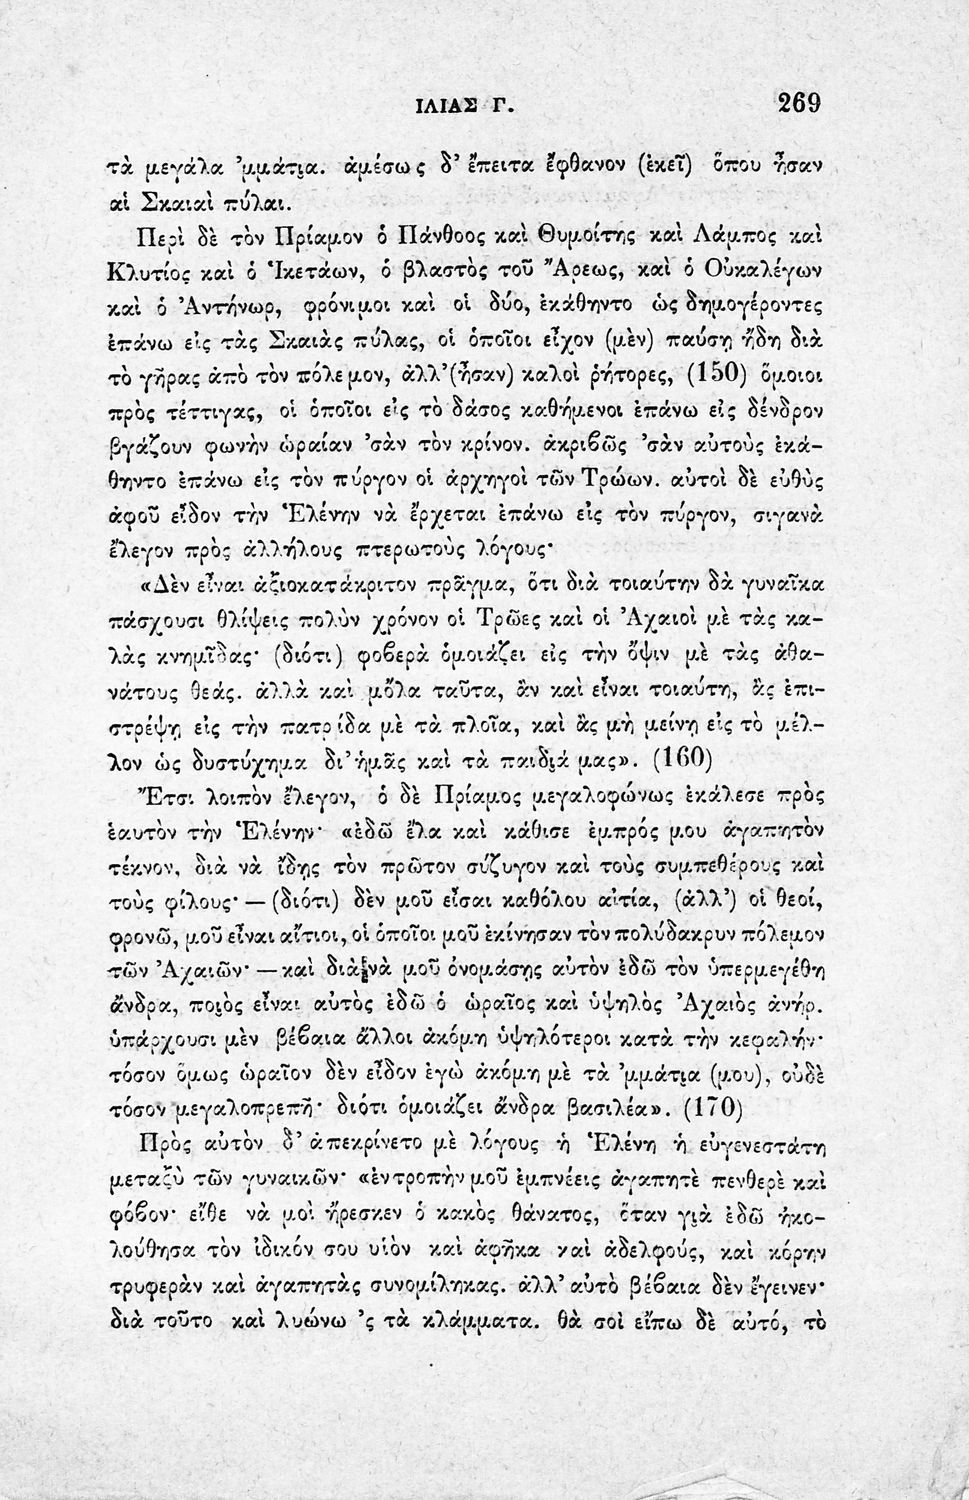 ΙΛΙΑΣ Γ. 269
τὰ μεγάλα 'μμάτι̯α. ἀμέσως δ' ἔπειτα ἔφθανον (ἐκεῖ) ὅπου ἦσαν
αἱ Σκαιαὶ πύλαι.
Περὶ δὲ τὸν Πρίαμον ὁ Πάνθοος καὶ Θυμοίτης καὶ Λάμπος καὶ
Κλυτίος καὶ ὁ Ἱκετάων, ὁ βλαστὸς τοῦ Ἄρεως, καὶ ὁ Οὐκαλέγων
καὶ ὁ Ἀντήνωρ, φρόνιμοι καὶ οἱ δύο, ἐκάθηντο ὡς δημογέροντες
ἐπάνω εἰς τὰς Σκαιὰς πύλας, οἱ ὁποῖοι εἶχον (μὲν) παύση ἤδη διὰ
τὸ γῆρας ἀπὸ τὸν πόλεμον, ἀλλ' (ἦσαν) καλοὶ ῥήτορες, (150) ὅμοιοι
πρὸς τέττιγας, οἱ ὁποῖοι εἰς τὸ δάσος καθήμενοι ἐπάνω εἰς δένδρον
βγάζουν φωνὴν ὡραίαν 'σὰν τὸν κρίνον. ἀκριβῶς 'σὰν αὐτοὺς ἐκά-
θηντο ἐπάνω εἰς τὸν πύργον οἱ ἀρχηγοὶ τῶν Τρώων. αὐτοὶ δὲ εὐθὺς
ἀφοῦ εἶδον τὴν Ἑλένην νὰ ἔρχεται ἐπάνω εἰς τὸν πύργον, σιγανὰ
ἔλεγον πρὸς ἀλλήλους πτερωτοὺς λόγους·
«Δὲν εἶναι ἀξιοκατάκριτον πρᾶγμα, ὅτι διὰ τοιαύτην δὰ γυναῖκα
πάσχουσι θλίψεις πολὺν χρόνον οἱ Τρῶες καὶ οἱ Ἀχαιοὶ μὲ τὰς κα-
λὰς κνημῖδας· (διότι) φοβερὰ ὁμοιάζει εἰς τὴν ὄψιν μὲ τὰς ἀθα-
νάτους θεάς. ἀλλὰ καὶ μὅλα ταῦτα, ἂν καὶ εἶναι τοιαύτη, ἂς ἐπι-
στρέψῃ εἰς τὴν πατρίδα μὲ τὰ πλοῖα, καὶ ἂς μὴ μείνῃ εἰς τὸ μέλ-
λον ὡς δυστύχημα δι' ἡμᾶς καὶ τὰ παιδι̯ά μας». (160)
Ἔτσι λοιπὸν ἔλεγον, ὁ δὲ Πρίαμος μεγαλοφώνως ἐκάλεσε πρὸς
ἑαυτὸν τὴν Ἑλένην· «ἐδῶ ἔλα καὶ κάθισε ἐμπρός μου ἀγαπητὸν
τέκνον, διὰ νὰ ἴδῃς τὸν πρῶτον σύζυγον καὶ τοὺς συμπεθέρους καὶ
τοὺς φίλους· — (διότι) δὲν μοῦ εἶσαι καθόλου αἰτία, (ἀλλ') οἱ θεοί,
φρονῶ, μοῦ εἶναι αἴτιοι, οἱ ὁποῖοι μοῦ ἐκίνησαν τὸν πολύδακρυν πόλεμον
τῶν Ἀχαιῶν· — καὶ διὰ νὰ μοῦ ὀνομάσῃς αὐτὸν ἐδῶ τὸν ὑπερμεγέθη
ἄνδρα, ποι̯ὸς εἶναι αὐτὸς ἐδῶ ὁ ὡραῖος καὶ ὑψηλὸς Ἀχαιὸς ἀνήρ.
ὑπάρχουσι μὲν βέβαια ἄλλοι ἀκόμη ὑψηλότεροι κατὰ τὴν κεφαλήν·
τόσον ὅμως ὡραῖον δὲν εἶδον ἐγὼ ἀκόμη μὲ τὰ 'μμάτι̯α (μου), οὐδὲ
τόσον μεγαλοπρεπῆ· διότι ὁμοιάζει ἄνδρα βασιλέα». (170)
Πρὸς αὐτὸν δ' ἀπεκρίνετο μὲ λόγους ἡ Ἑλένη ἡ εὐγενεστάτη
μεταξὺ τῶν γυναικῶν· «ἐντροπὴν μοῦ ἐμπνέεις ἀγαπητὲ πενθερὲ καὶ
φόβον· εἴθε νὰ μοὶ ἤρεσκεν ὁ κακὸς θάνατος, ὅταν γι̯ὰ ἐδῶ ἠκο-
λούθησα τὸν ἰδικόν σου υἱὸν καὶ ἀφῆκα καὶ ἀδελφούς, καὶ κόρην
τρυφερὰν καὶ ἀγαπητὰς συνομίληκας. ἀλλ' αὐτὸ βέβαια δὲν ἔγεινεν·
διὰ τοῦτο καὶ λυώνω 'ς τὰ κλάμματα. θὰ σοὶ εἴπω δὲ αὐτό, τὸ